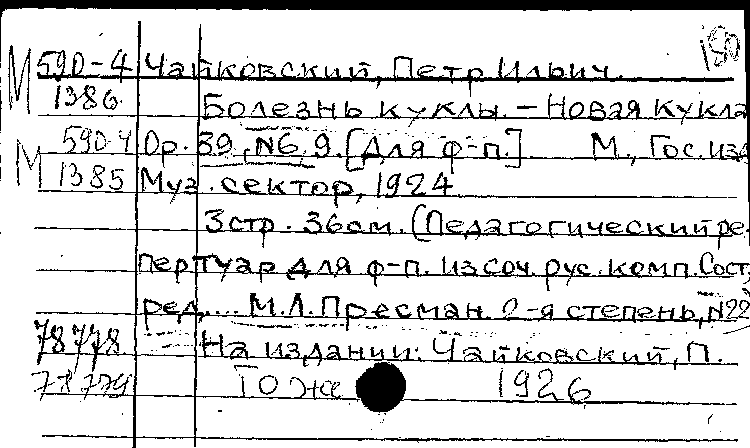 150
М 590-4 Чайковский, Петр Ильич.
1386 Болезнь куклы. – Новая кукла
М 590-4 Op. 39, №6, 9. [Для ф-п.] М., Гос. изд
1385 Муз. сектор, 1924
3 стр. 36 см. (Педагогический ре-
пертуар для ф-п. из соч. рус. комп. Сост,
ред,... М.Л. Пресман. 2-я степень, №22
78778 На издании: Чайковский, П.
78779 То же 1926